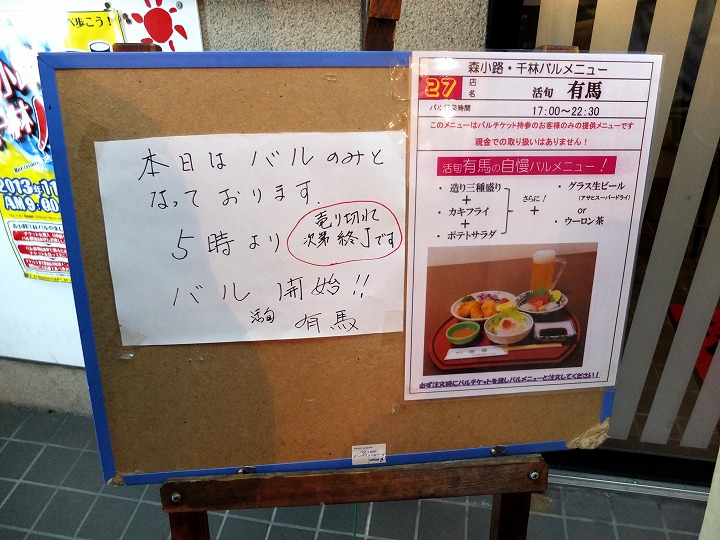 べ歩こう!
2013年11
AM9:00
本日はバルのみと
なっております.
5時より
売り切れ
次第終了です
バル開始!!
活旬 有馬
森小路・千林バルメニュー
27
店名
活旬 有馬
バル営業時間
17:00~22:30
このメニューはバルチケット持参のお客様のみの提供メニューです
現金での取り扱いはありません!
活旬 有馬の自慢バルメニュー!
・ 造り三種盛り
+
・ カキフライ
+
・ ポテトサラダ
さらに!
+
・ グラス生ビール
(アサヒスーパードライ)
or
・ ウーロン茶
必ず注文時にバルチケットを渡しバルメニューと注文してください!